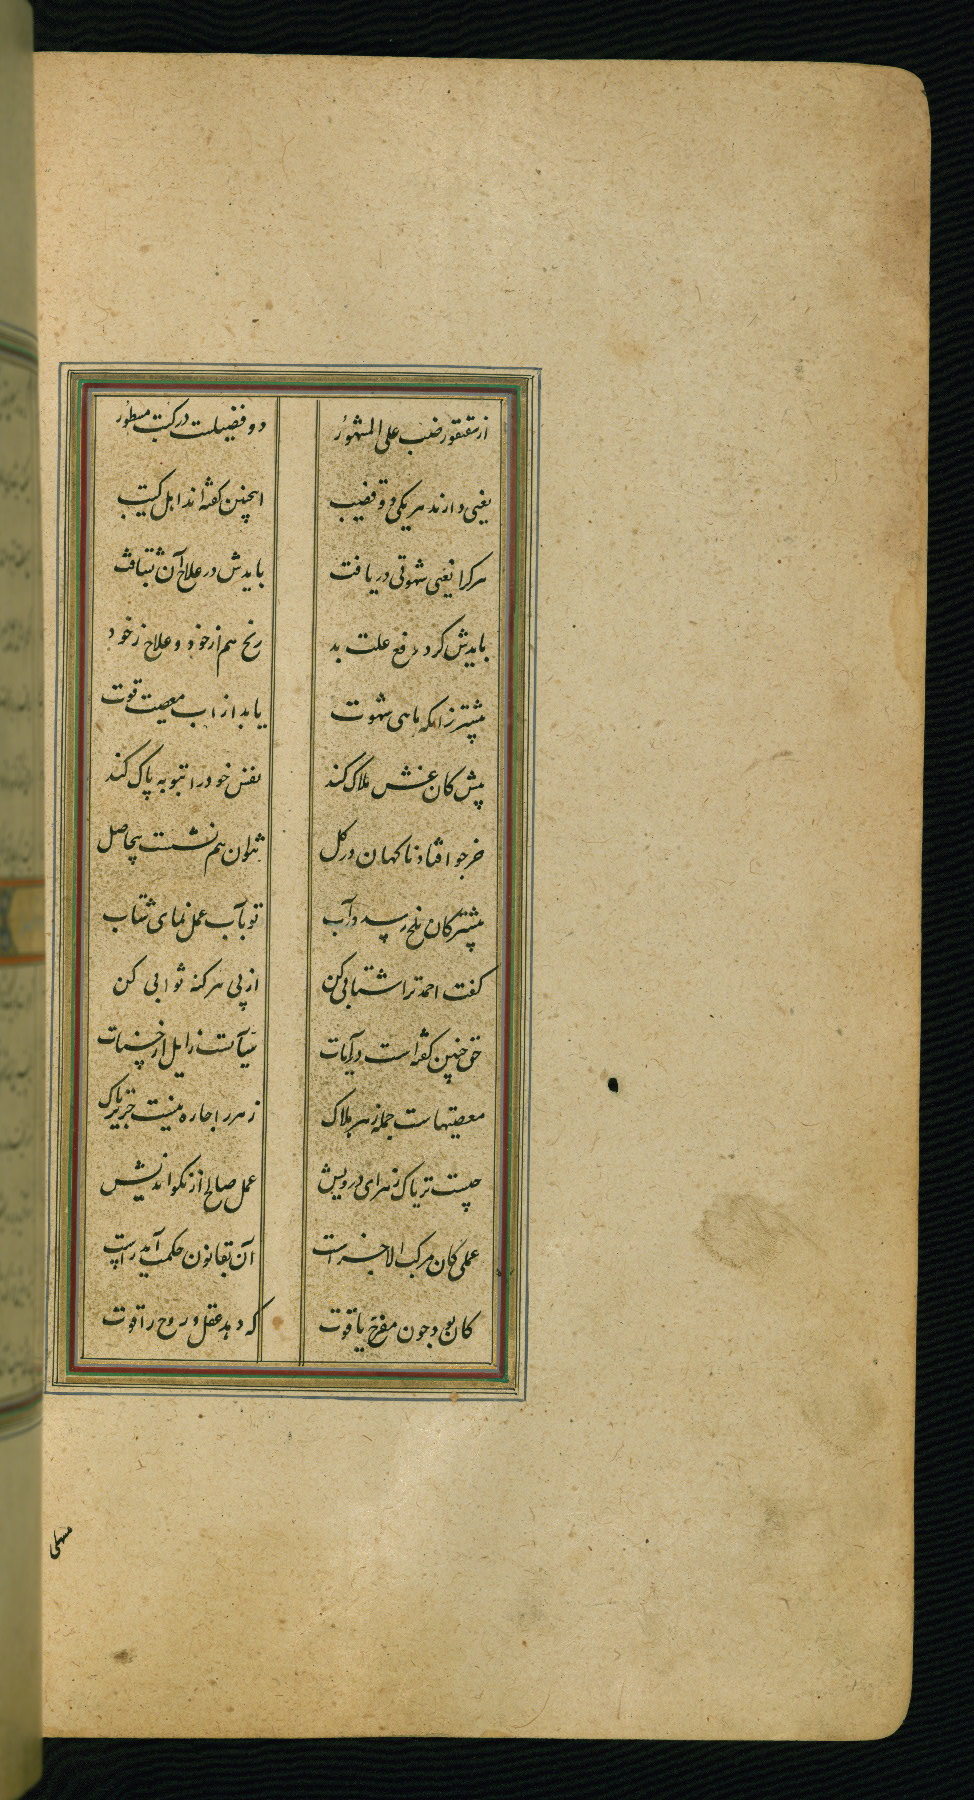 از سقنقور ضب علی المشهور دو فضیلت در کتب مسطور
یعنی دارند هر یکی دو قضیب اینچنین گفته‌اند اهل کتیب
هر کرا یعنی شهوتی دریافت بایدش در علاج آن شتافت
بایدش کرد دفع علت بد رنج هم از خود و علاج ز خود
پیشتر زانکه ماهی شهوت یابد از آب معصیت قوت
پیش کان عشش هلاک کند نفس خود را بتوبه پاک کند
خر چو افتاد ناکهان در کل نتوان هم نشست بیحاصل
پیشتر کان رسد در آب تو بآب عمل نمای شتاب
گفت احمد ترا شتابی کن از پی هر کنه ثوابی کن
حق چنین گفته است در آیات سیآتست زایل از حسنات
معصیتهاست جمله زهر هلاک زهر را چاره نیست جز تریاک
چیست تریاک زهر ای درویش عمل صالح از نکو اندیش
عملی کان مرکب الاجزاست آن بقانون حکمت آید راست
کان بود چون مفرح یاقوت که دهد عقل و روح را قوت
مسهلی